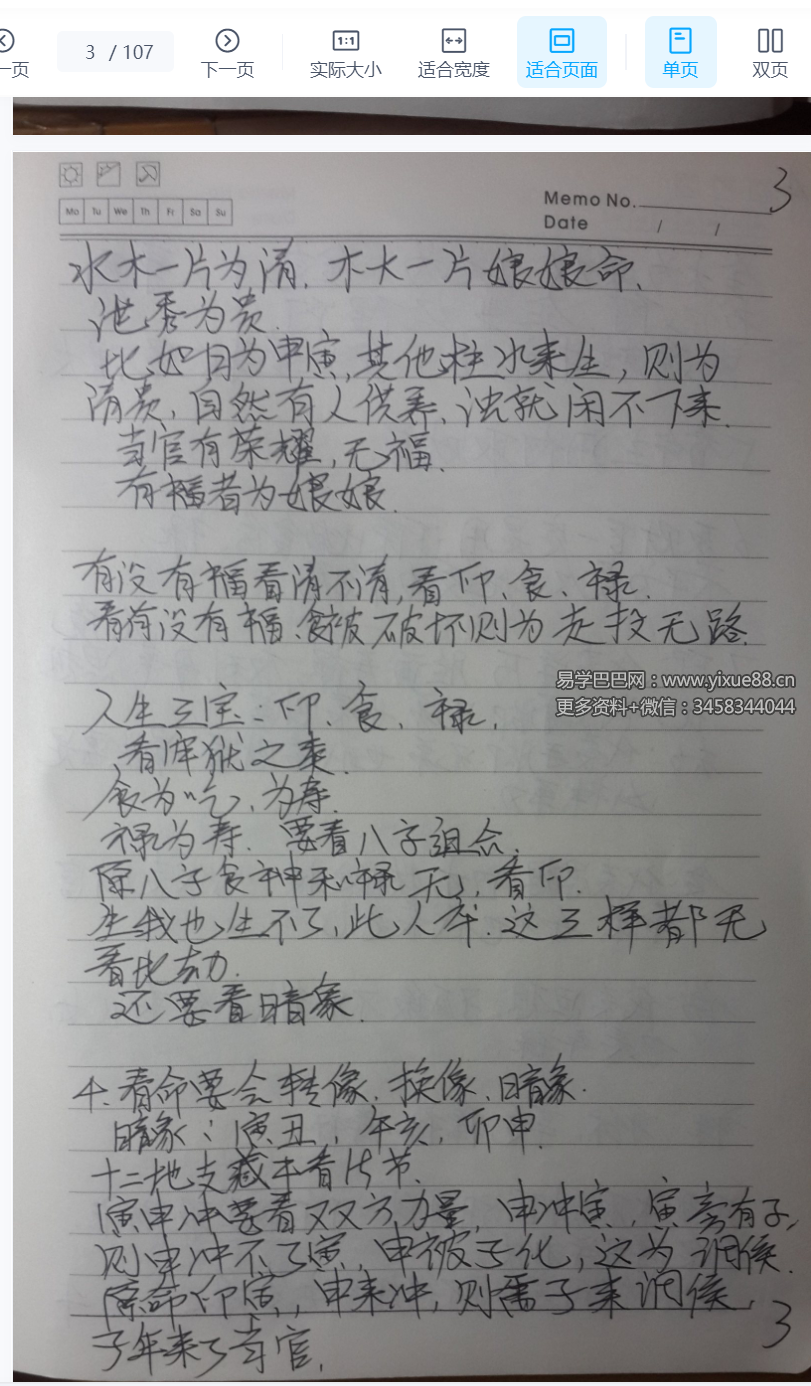 一页
3 / 107
下一页
1:1
实际大小
适合宽度
适合页面
单页
双页
3
Memo No.
Mo Tu We Th Fr Sa Su
Date / /
水木一片为清、木火一片娘娘命、
泄秀为贵、
比如日为甲寅,其他柱水来生,则为
清贵、自然有人供养、浊就闲不下来、
当官有荣耀,无福、
有福者为娘娘、
有没有福看清不清,看印、食、禄、
看有没有福、食被破坏则为走投无路、
易学巴巴网:www.yixue88.cn
更多资料+微信:3458344044
人生三宝:印、食、禄、
看库狱之素、
食为吃、为寿、
禄为寿、要看八字组合、
除八字食神和禄无,看印、
生我也生不了,此人坏、这三样都无
看比劫、
还要看暗象、
4、看命要会转像、换像、暗象、
暗象:寅丑,午亥,卯申、
十二地支藏本看15节、
寅申冲要看双方力量,申冲寅,寅旁有子,
则申冲不了寅,申被子化,这为调候、
原命印寅,申来冲,则需子来调候,
子年来了当官、
3